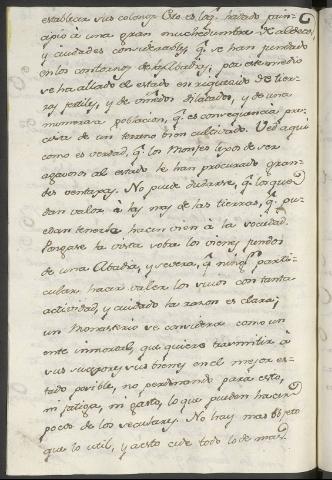 establecer sus colonos. Esto es lo q.e ha dado prin-
cipio à una gran muchedumbre de aldeas,
y ciudades considerables, q.e se han fundado
en los contornos de las Abadias; por este medio
se ha allado el estado enriquecido de tier-
ras fertiles, y de ganados dilatados, y de una
numerosa poblacion, q.e es consequencia pre-
cisa de un terreno bien cultivado. Ved aqui
como es verdad, q.e los Monjes lexos de ser
agavosos al estado le han procurado gran-
des ventajas. No pude dudarse, q.e los que
dan valor à las mas de las tierras, q.e pu-
edan tenerla hacen vien à la sociedad.
Pongase la vista sobre los vienes fundos
de una Abadia, y se vera, q.e ning.n parti-
cular hace valer los suios con tanta
actividad, y cuidado la razon es clara;
un Monasterio se considera como un
ente inmortal, que quiere trasmitir à
sus sucesores sus vienes en el mejor es-
tado posible, no perdonando para esto,
ni fatiga, ni gasto, lo que pueden hacer
pocos de los seculares. No hay mas objeto
que lo util, y a esto cede todo lo de mas.